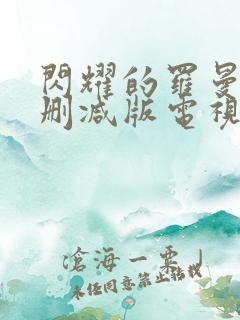 閃耀的羅曼
删减版電視
滄海一栗
未经同意禁止转载